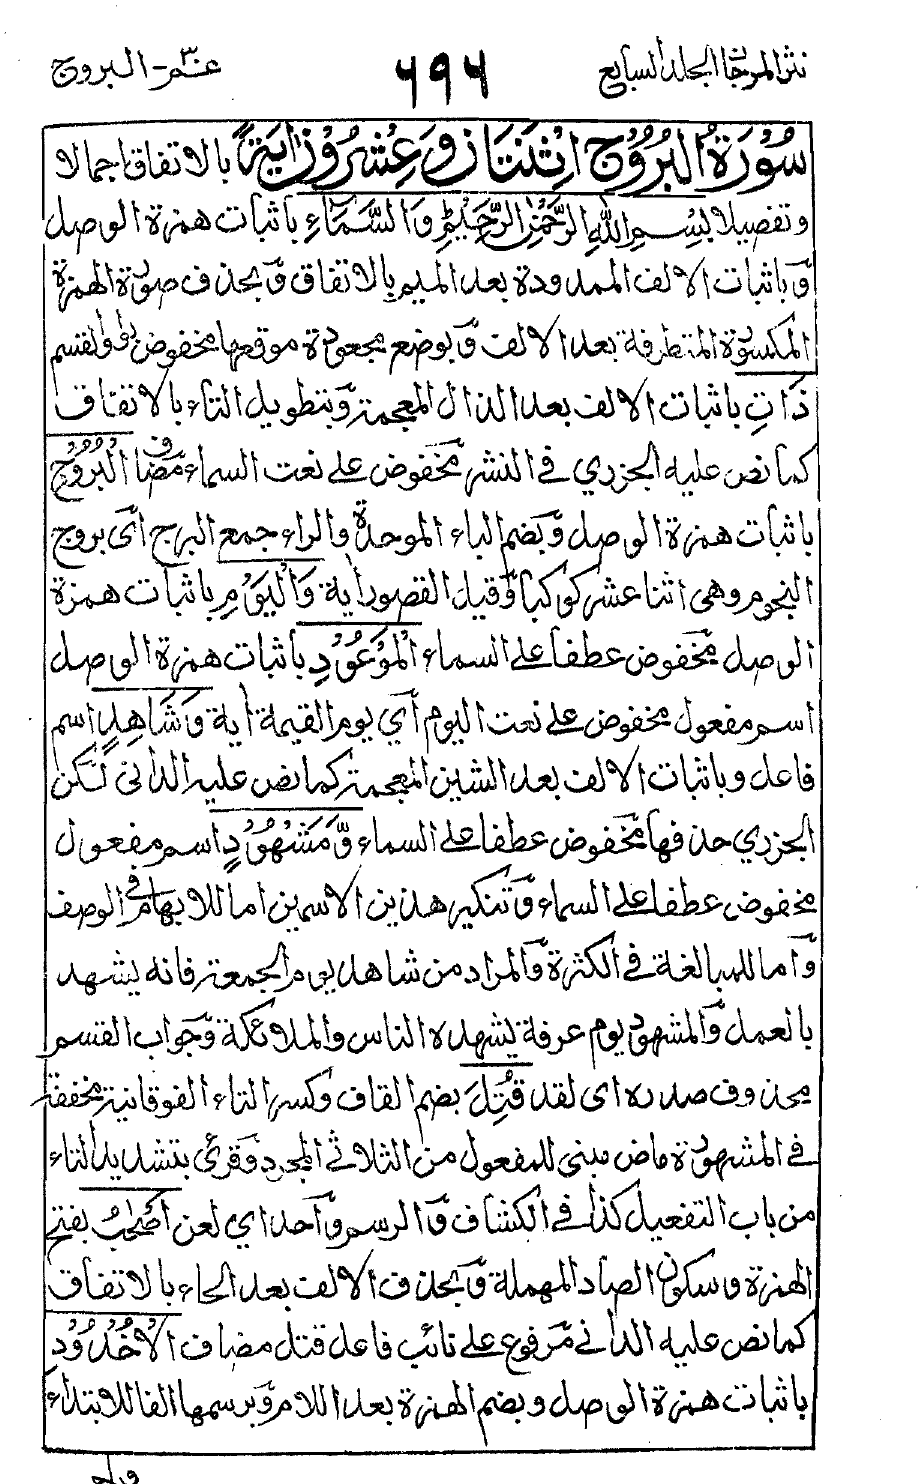 نثر المرجان المجلد السابع ٦٩٦ عم ٣٠ - البروج
سُوْرَةُ الْبُرُوْجِ اثْنَتَانِ وَعِشْرُوْنَ اٰيَةً بالاتفاق اجمالا
وتفصيلا بِسْمِ اللّٰهِ الرَّحْمٰنِ الرَّحِيْمِ وَالسَّمَآءِ باثبات همزة الوصل
وَباثبات الالف الممدودة بعد الميم بالاتفاق وَبحذف صورة الهمزة
المكسورة المتطرفة بعد الالف وَبوضع مجعودة موقعها مخفوض بواو القسم
ذَاتِ باثبات الالف بعد الذال المعجمة وَبتطويل التاء بالاتفاق
كما نص عليه الجزري في النشر مخفوض على نعت السماء مضاف الْبُرُوْجِ
باثبات همزة الوصل وَبضم الباء الموحدة والراء جمع البرج اَى بروج
النجوم وهى اثنا عشر كوكبا وَقيل القصور اٰية وَالْيَوْمِ باثبات همزة
الوصل مخفوض عطفا على السماء الْمَوْعُوْدِ باثبات همزة الوصل
اسم مفعول مخفوض على نعت اليوم اَي يوم القيمة اٰية وَشَاهِدٍ اسم
فاعل وباثبات الالف بعد الشين المعجمة كما نص عليه الدانى لٰكن
الجزري حذفها مخفوض عطفا على السماء وَّمَشْهُوْدٍ اسم مفعول
مخفوض عطفا على السماء وَتنكير هذين الاسمين اما للابهام في الوصف
وَاما للمبالغة في الكثرة وَالمراد من شاهد يوم الجمعة فانه يشهد
بالعمل وَالمشهود يوم عرفة يشهده الناس والملائكة وَجواب القسم
محذوف صدره اى لقد قُتِلَ بضم القاف وكسر التاء الفوقانية مخففة
في المشهورة ماض مبنى للمفعول من الثلاثي المجرد وَقرئ بتشديد التاء
من باب التفعيل كذا في الكشاف وَالرسم واَحد اي لعن اَصْحٰبُ بفتح
الهمزة وسكون الصاد المهملة وَبحذف الالف بعد الحاء بالاتفاق
كما نص عليه الدانى مَرفوع على نائب فاعل قتل مضاف الْاُخْدُوْدِ
باثبات همزة الوصل وبضم الهمزة بعد اللام وَبرسمها الفا للابتداء